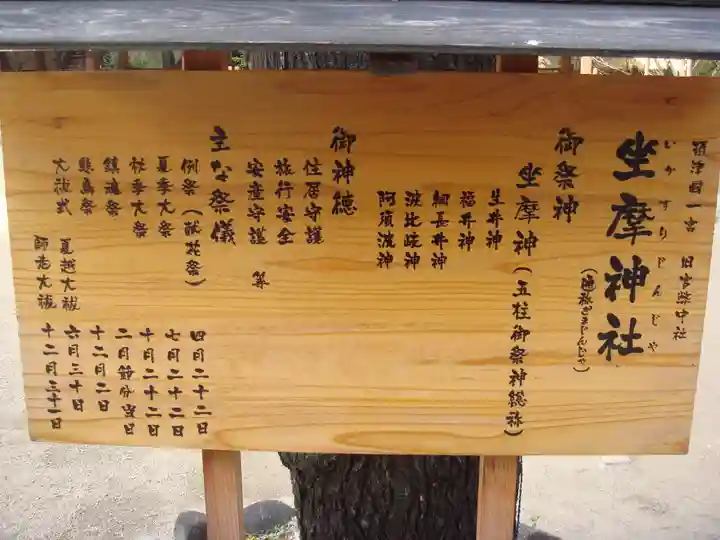 摂津国一宮 旧官幣中社
坐摩神社
いかすりじんじゃ
(通称ざまじんじゃ)
御祭神
坐摩神(五柱御祭神総称)
生井神
福井神
綱長井神
波比岐神
阿須波神
御神徳
住居守護
旅行安全
安産守護 等
主な祭儀
例祭(献花祭) 四月二十二日
夏季大祭 七月二十二日
秋季大祭 十月二十二日
鎮魂祭 二月節分当日
十二月二日
大祓式 夏越大祓 六月三十日
師走大祓 十二月三十一日